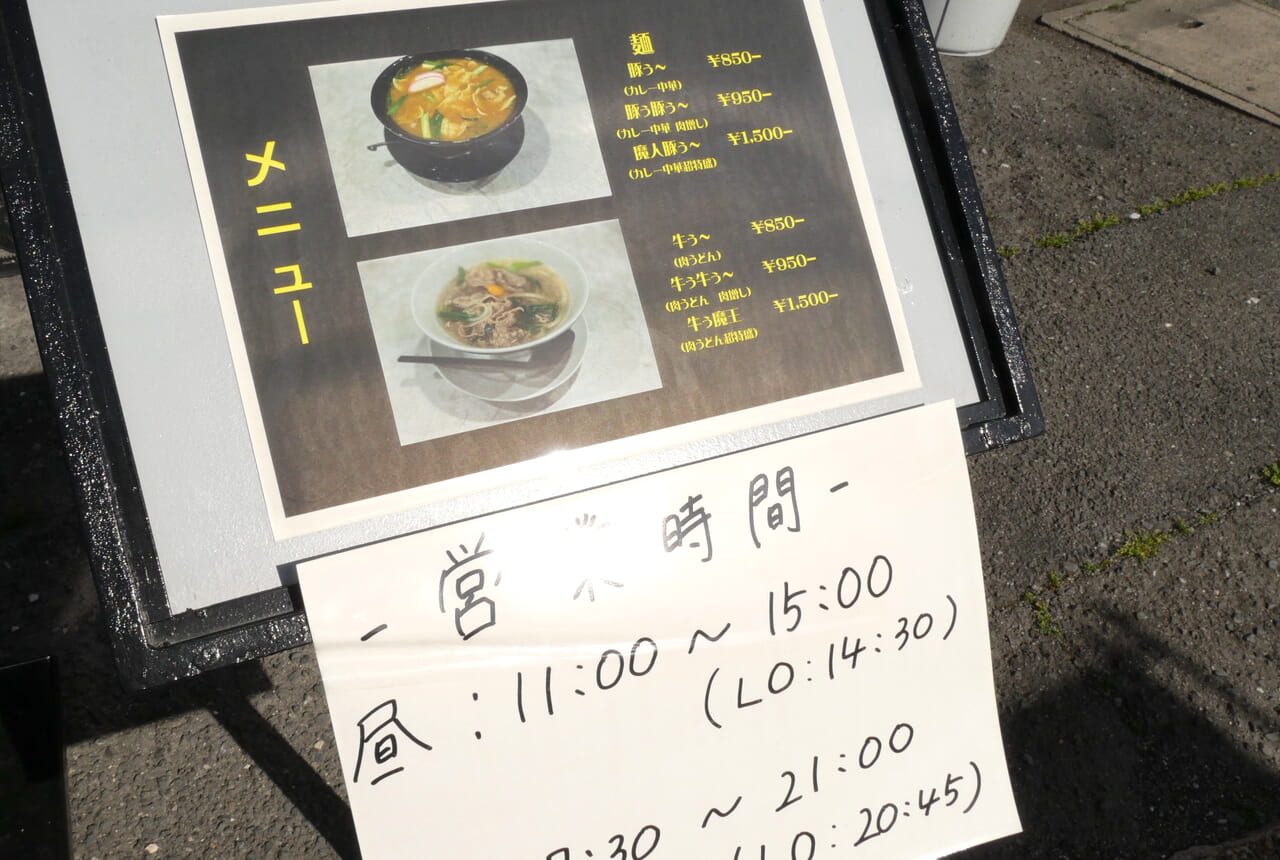 メニュー
麺
豚う〜 ¥850−
(カレー中華)
豚う豚う〜 ¥950−
(カレー中華 肉増し)
魔人豚う〜 ¥1,500−
(カレー中華超特盛)
牛う〜 ¥850−
(肉うどん)
牛う牛う〜 ¥950−
(肉うどん 肉増し)
牛う魔王 ¥1,500−
(肉うどん超特盛)
- 営業時間 -
昼:11:00〜15:00
(LO:14:30)
:30 〜 21:00
(LO:20:45)